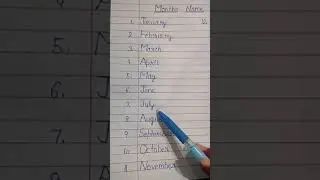 Months Name
1. January
2. February
3. March
4. April
5. May
6. June
7. July
8. August
9. September
10. October
11. November